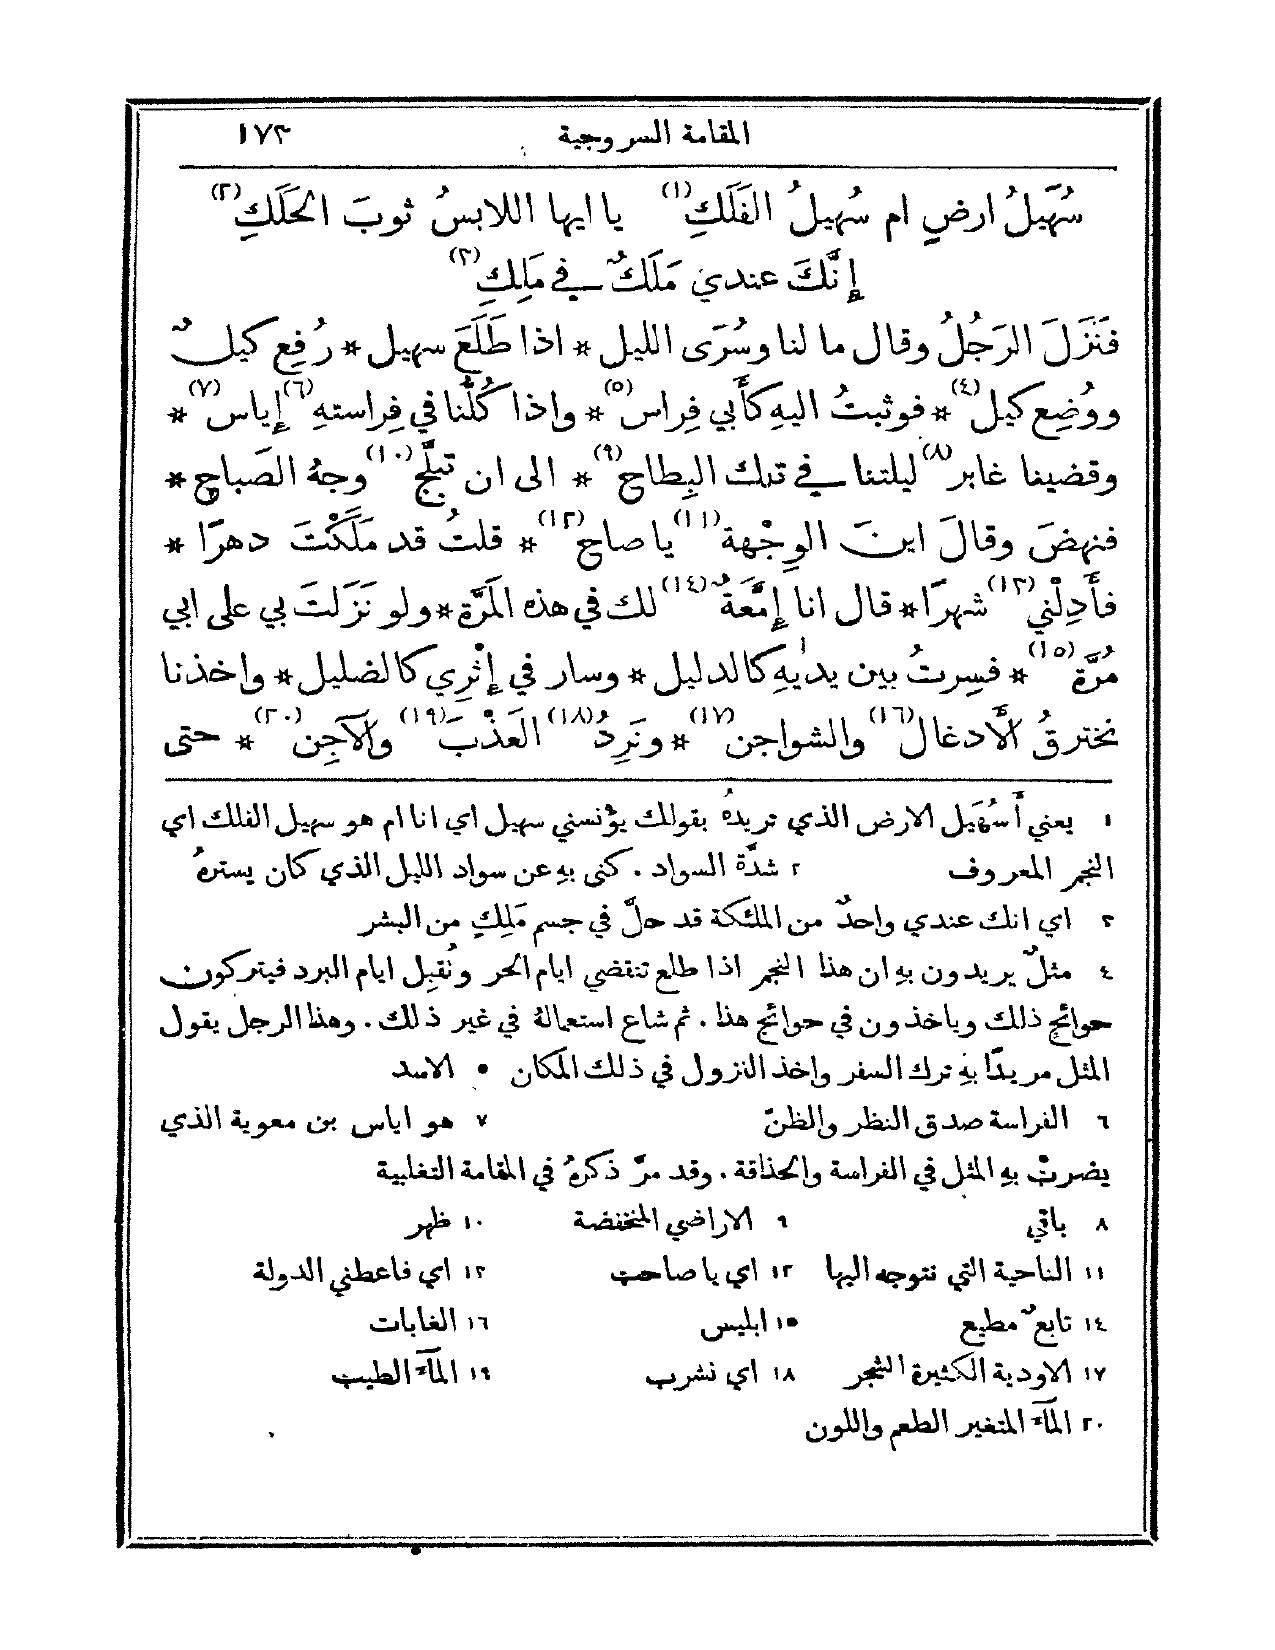 المقامة السروجية ١٧٣
سُهَيلُ ارضٍ ام سُهيلُ الفَلَكِ(١) يا ايها اللابسُ ثوبَ الحَلَكِ(٢)
إِنَّكَ عندي مَلَكٌ في مَلِكِ(٣)
فَنَزَلَ الرَجُلُ وقال ما لنا وسُرَى الليل * اذا طَلَعَ سهيل * رُفِع كيلٌ
ووُضِع كيل(٤) * فوثبتُ اليهِ كأَبي فِراس(٥) * واذا كُلُّنا في فِراستهِ(٦) إِياس(٧) *
وقضينا غابر(٨) ليلتنا في تلك البِطاح(٩) * الى ان تبلَّج(١٠) وجهُ الصَباح *
فنهضَ وقالَ اينَ الوِجْهة(١١) يا صاحِ(١٢) * قلتُ قد مَلَّكْتَ دهرًا *
فأَدِلْني(١٣) شهرًا * قال انا إِمَّعَةٌ(١٤) لك في هذه المَرَّة * ولو نَزَلتَ بي على ابي
مُرَّة(١٥) * فسِرتُ بين يديهِ كالدليل * وسار في إِثْرِي كالضليل * واخذنا
نخترقُ الأَدغال(١٦) والشواجن(١٧) * ونَرِدُ(١٨) العَذْبَ(١٩) والآجِن(٢٠) * حتى
١ يعني أَسُهَيل الارض الذي تريدهُ بقولك يؤنسني سهيل اي انا ام هو سهيل الفلك اي
النجم المعروف ٢ شدَّة السواد. كنى بهِ عن سواد الليل الذي كان يسترهُ
٣ اي انك عندي واحدٌ من الملئكة قد حلَّ في جسم مَلِكٍ من البشر
٤ مثلٌ يريدون بهِ ان هذا النجم اذا طلع تنقضي ايام الحر وتُقبِل ايام البرد فيتركون
حوائج ذلك وياخذون في حوائج هذا. ثم شاع استعمالهُ في غير ذلك. وهذا الرجل يقول
المثل مريدًا بهِ ترك السفر واخذ النزول في ذلك المكان ٥ الاسد
٦ الفراسة صدق النظر والظنّ ٧ هو اياس بن معوية الذي
يضربُ بهِ المثل في الفراسة والحذاقة. وقد مرَّ ذكرهُ في المقامة التغلبية
٨ باقي ٩ الاراضي المنخفضة ١٠ ظهر
١١ الناحية التي نتوجه اليها ١٢ اي يا صاحب ١٣ اي فاعطني الدولة
١٤ تابعٌ مطيع ١٥ ابليس ١٦ الغابات
١٧ الاودية الكثيرة الشجر ١٨ اي نشرب ١٩ المآء الطيب
٢٠ المآء المتغير الطعم واللون